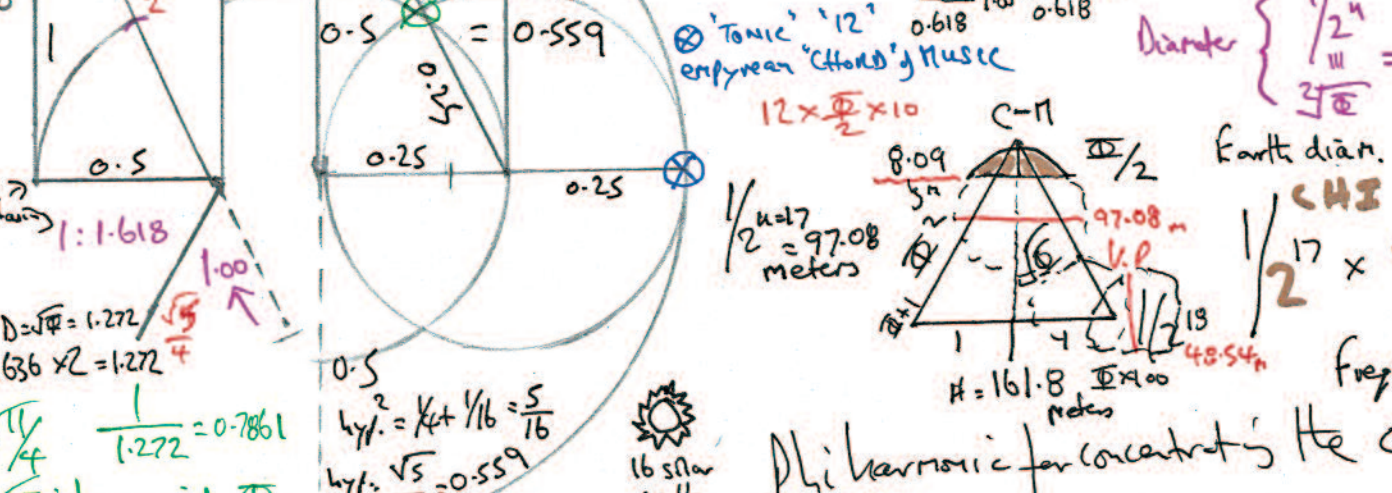 2
1
0.5
1:1.618
1.00
D=√Φ = 1.272
√5/4
636 ×2 = 1.272
π/4
1/1.272 = 0.7861
0.5 = 0.559
0.25
0.25
0.25
0.5
hyp.² = 1/4 + 1/16 = 5/16
hyp. √5 = 0.559
16 solar
⊗ "TONIC" "12"
empyrean "CHORD" of MUSIC
12 × Φ/2 × 10
0.618 1.00 0.618
C-M
8.09
Φ/2
1/2 n=17
= 97.08
meters
97.08 m
V.P
Φ
Φ+1
√Φ
1
1/2 18
48.54m
H = 161.8 Φ×100
meters
Diameter { 1/2ⁿ
=
²√Φ
Earth diam.
CHI
1/2 17 ×
Freq
Phi harmonic for concentrating the